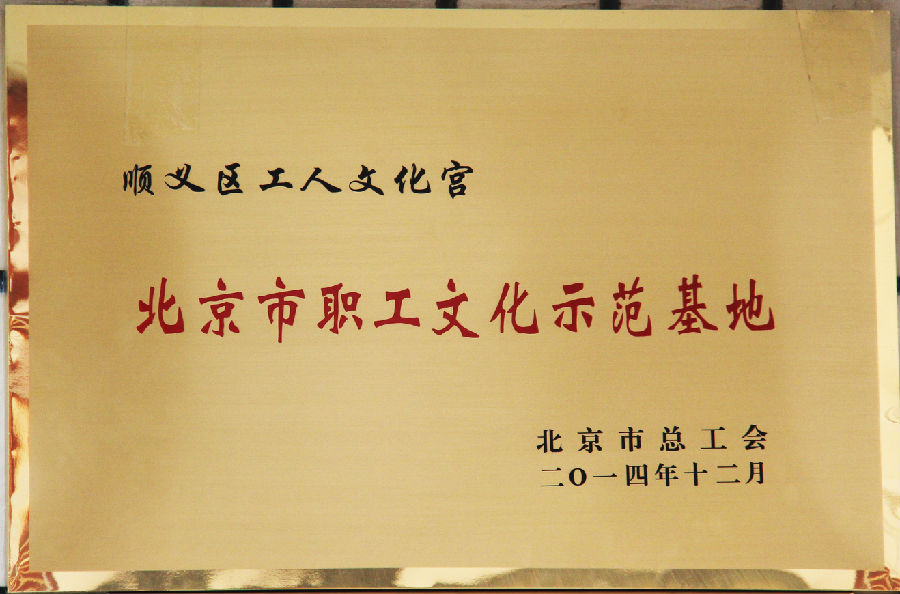 顺义区工人文化宫
北京市职工文化示范基地
北京市总工会
二〇一四年十二月